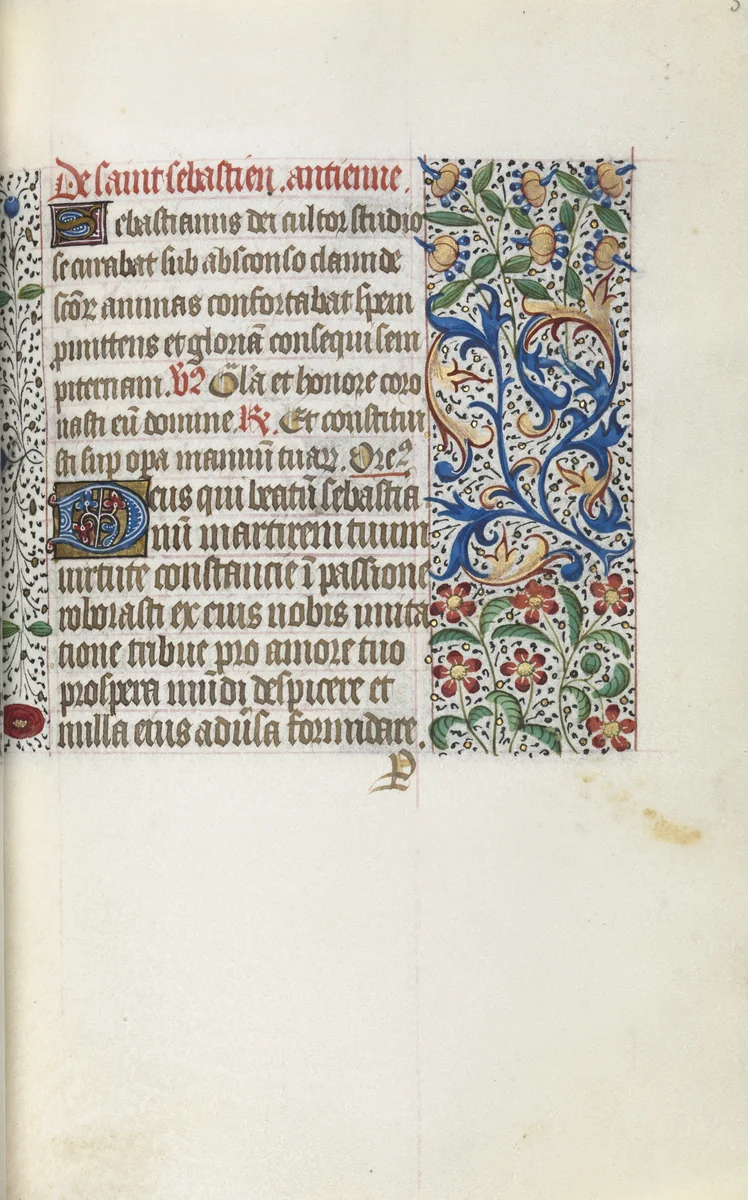 De saint sebastien . antienne .
Sebastianus dei cultor studio
se curabat sub absconso clamide
scõꝝ animas confortabat spem
pmittens et gloriã consequi sem
piternam . ℣ Gl'a et honore coro
nasti eũ domine . ℟. Et constitui
sti sup opa manuũ tuaꝝ . Ore
Deus qui beatũ sebastia
nũ martirem tuum
virtute constancie ĩ passione
roborasti ex eius nobis imita
tione tribue pro amore tuo
prospera mũdi despicere et
nulla eius adũsa formidare .
P